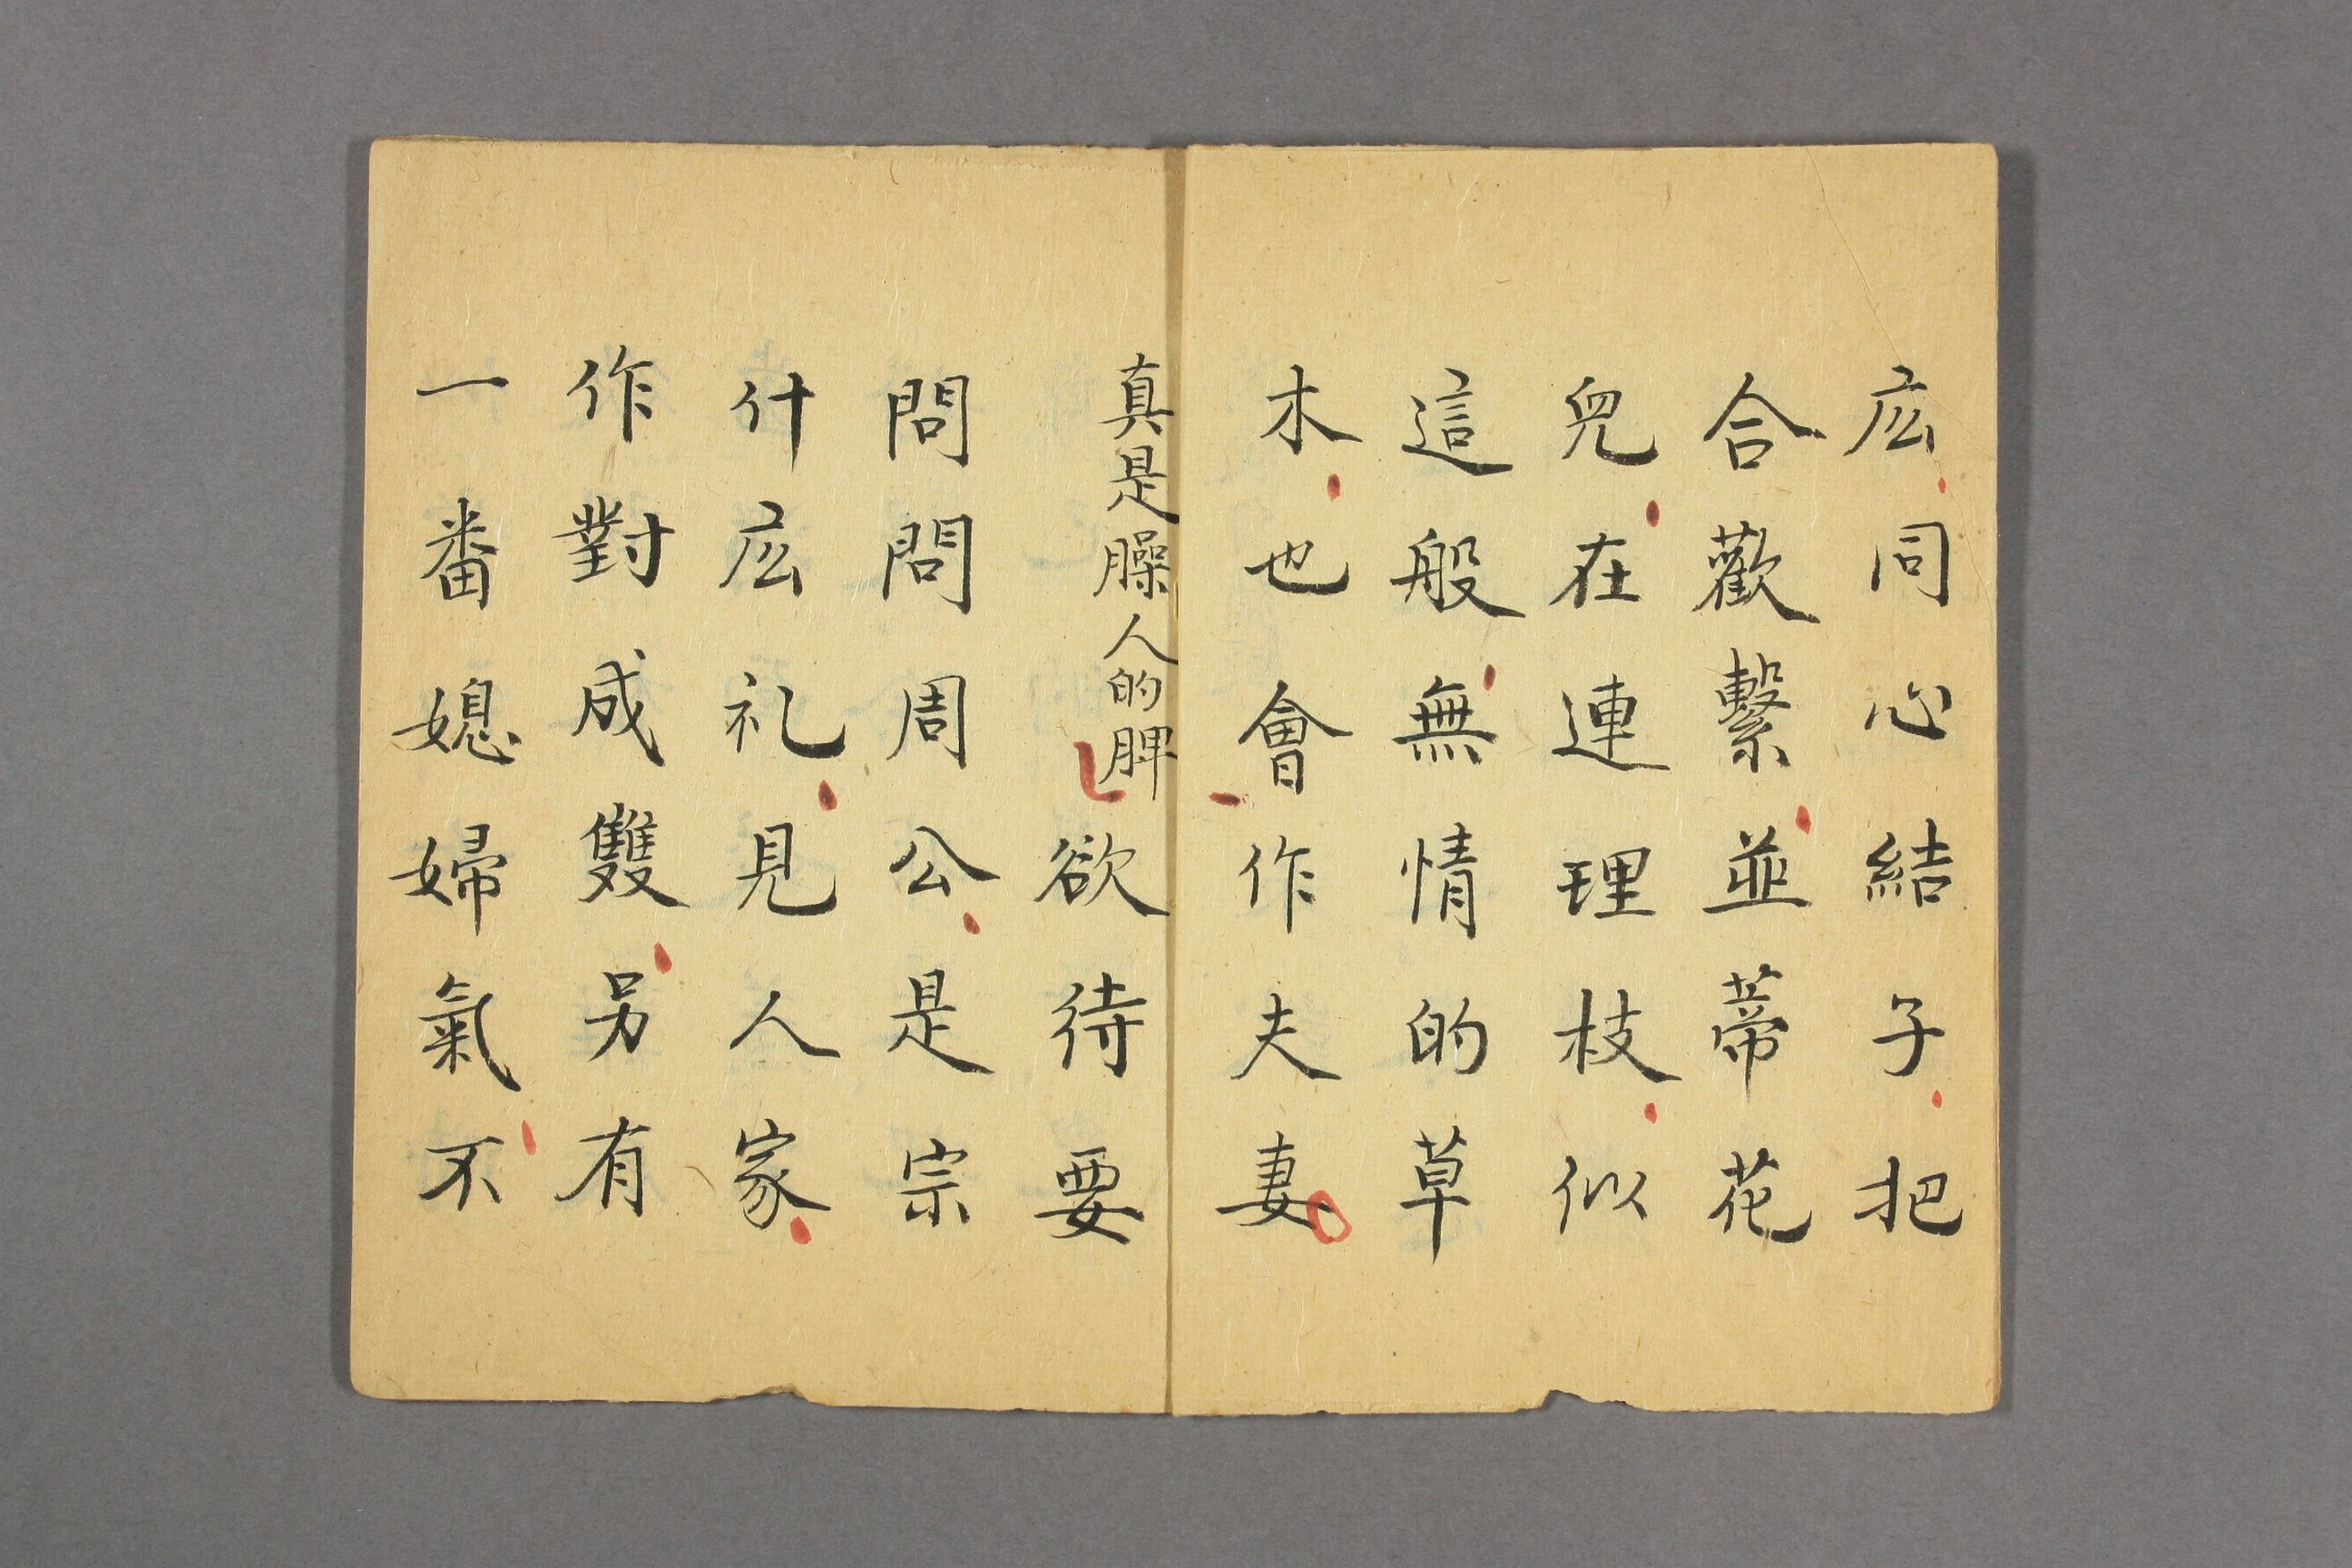 庅同心結子把
合歡繫並蒂花
兒在連理枝似
這般無情的草
木也會作夫妻
真是臊人的脾
欲待要
問問周公是宗
什庅礼見人家
作對成雙另有
一番媳婦氣不